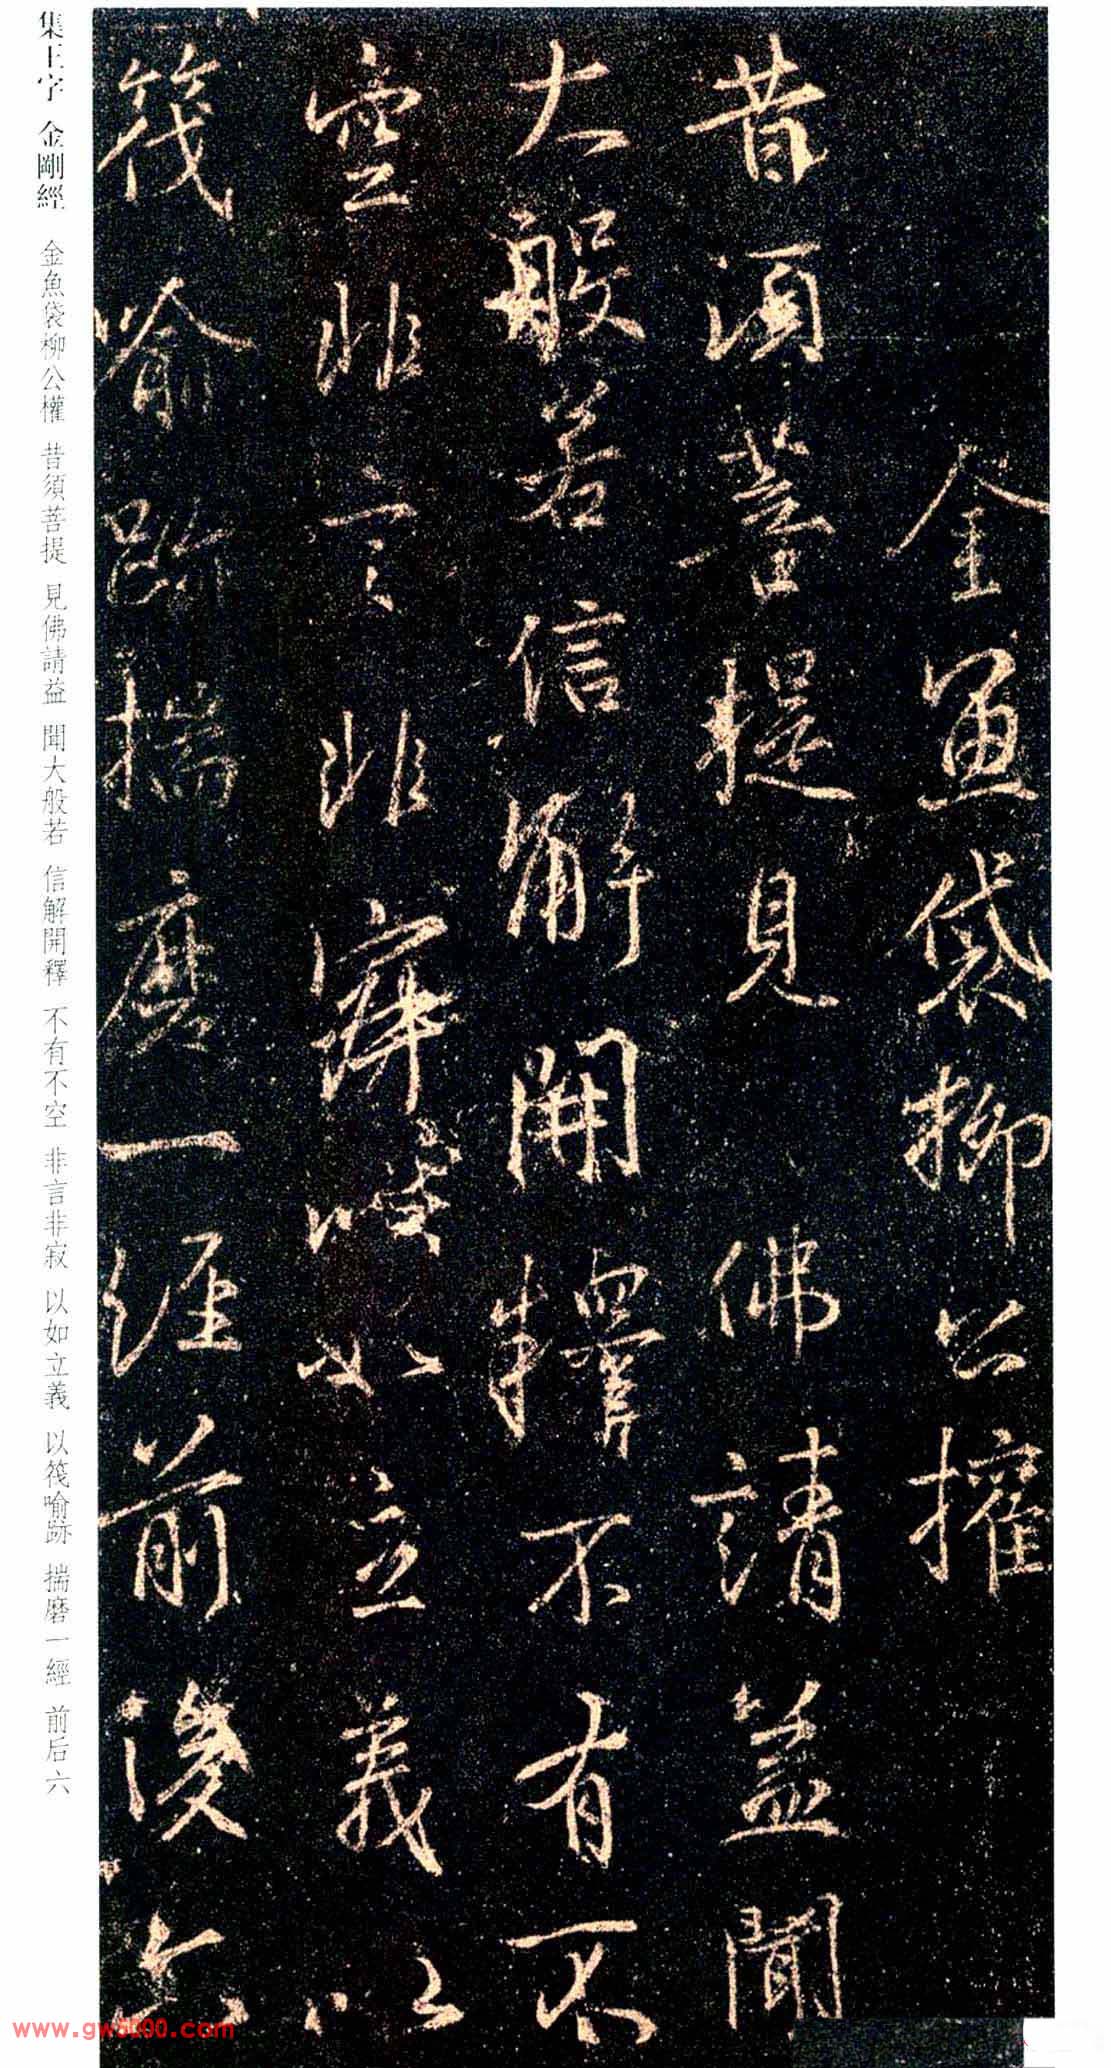 金魚袋柳公權
昔須菩提見佛請益聞
大般若信解開釋不有不
空非言非寂以如立義以
筏喻跡揣磨一經前後六
集王字 金剛經 金魚袋柳公權 昔須菩提 見佛請益 聞大般若 信解開釋 不有不空 非言非寂 以如立義 以筏喻跡 揣磨一經 前后六
www.gw5000.com